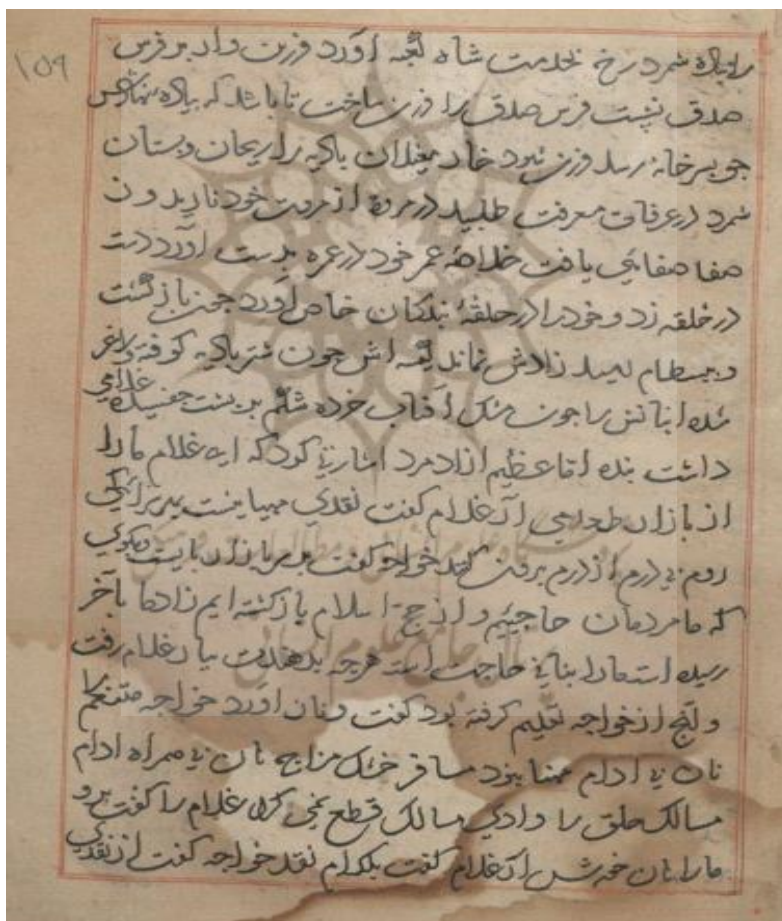 ۱۵۹
را پیاده شمرد رخ بخدمت شاه کعبه آورد فرزین وار بر فرس
صدق نشست فرس صدق را فرزین ساخت تا باشد که پیاده
چو بسر خانه رسد فرزین شود خار مغیلان بادیه را ریحان و بستان
شمرد در عرفات معرفت طلبید در مروه از مروت خود نادیدن
صفا صفایی یافت خلاصه عمر خود در عمره بدست آورد دست
در حلقه زد و خود را در حلقهٔ بندکان خاص آورد چون بازگشت
و ببسطام رسید زادش نماند کیسه اش چون شتر بادیه کوفته و لاغر
شده انبانش را چون مشک آفتاب خرده شکم بر پشت چفسیده غلامی
داشت بنده اما عظیم ازاد مرد اشارتی کرد که ای غلام ما را
از بازار طعامی ار غلام کفت نقدی مهیا نیست
روم بی درم از درم برون کنند خواجه کفت برو ببازار بایست و بکوی
که ما مردمان حاجییم و از حج اسلام باز کشته ایم زاد ما بآخر
رسیده است ما را بنانی حاجت است هرچه بدهندت بیار غلام رفت
و آنچ از خواجه تعلیم کرفته بود کفت و نان آورد خواجه
نان بی ادام مهنا نبود مسافر خشک مزاج نان بی همراه ادام
مسالک حلق را وادی مسالک قطع نمی کرد غلام را کفت برو
ما را نان خورش ار غلام کفت بکدام نقد خواجه کفت از نقدی